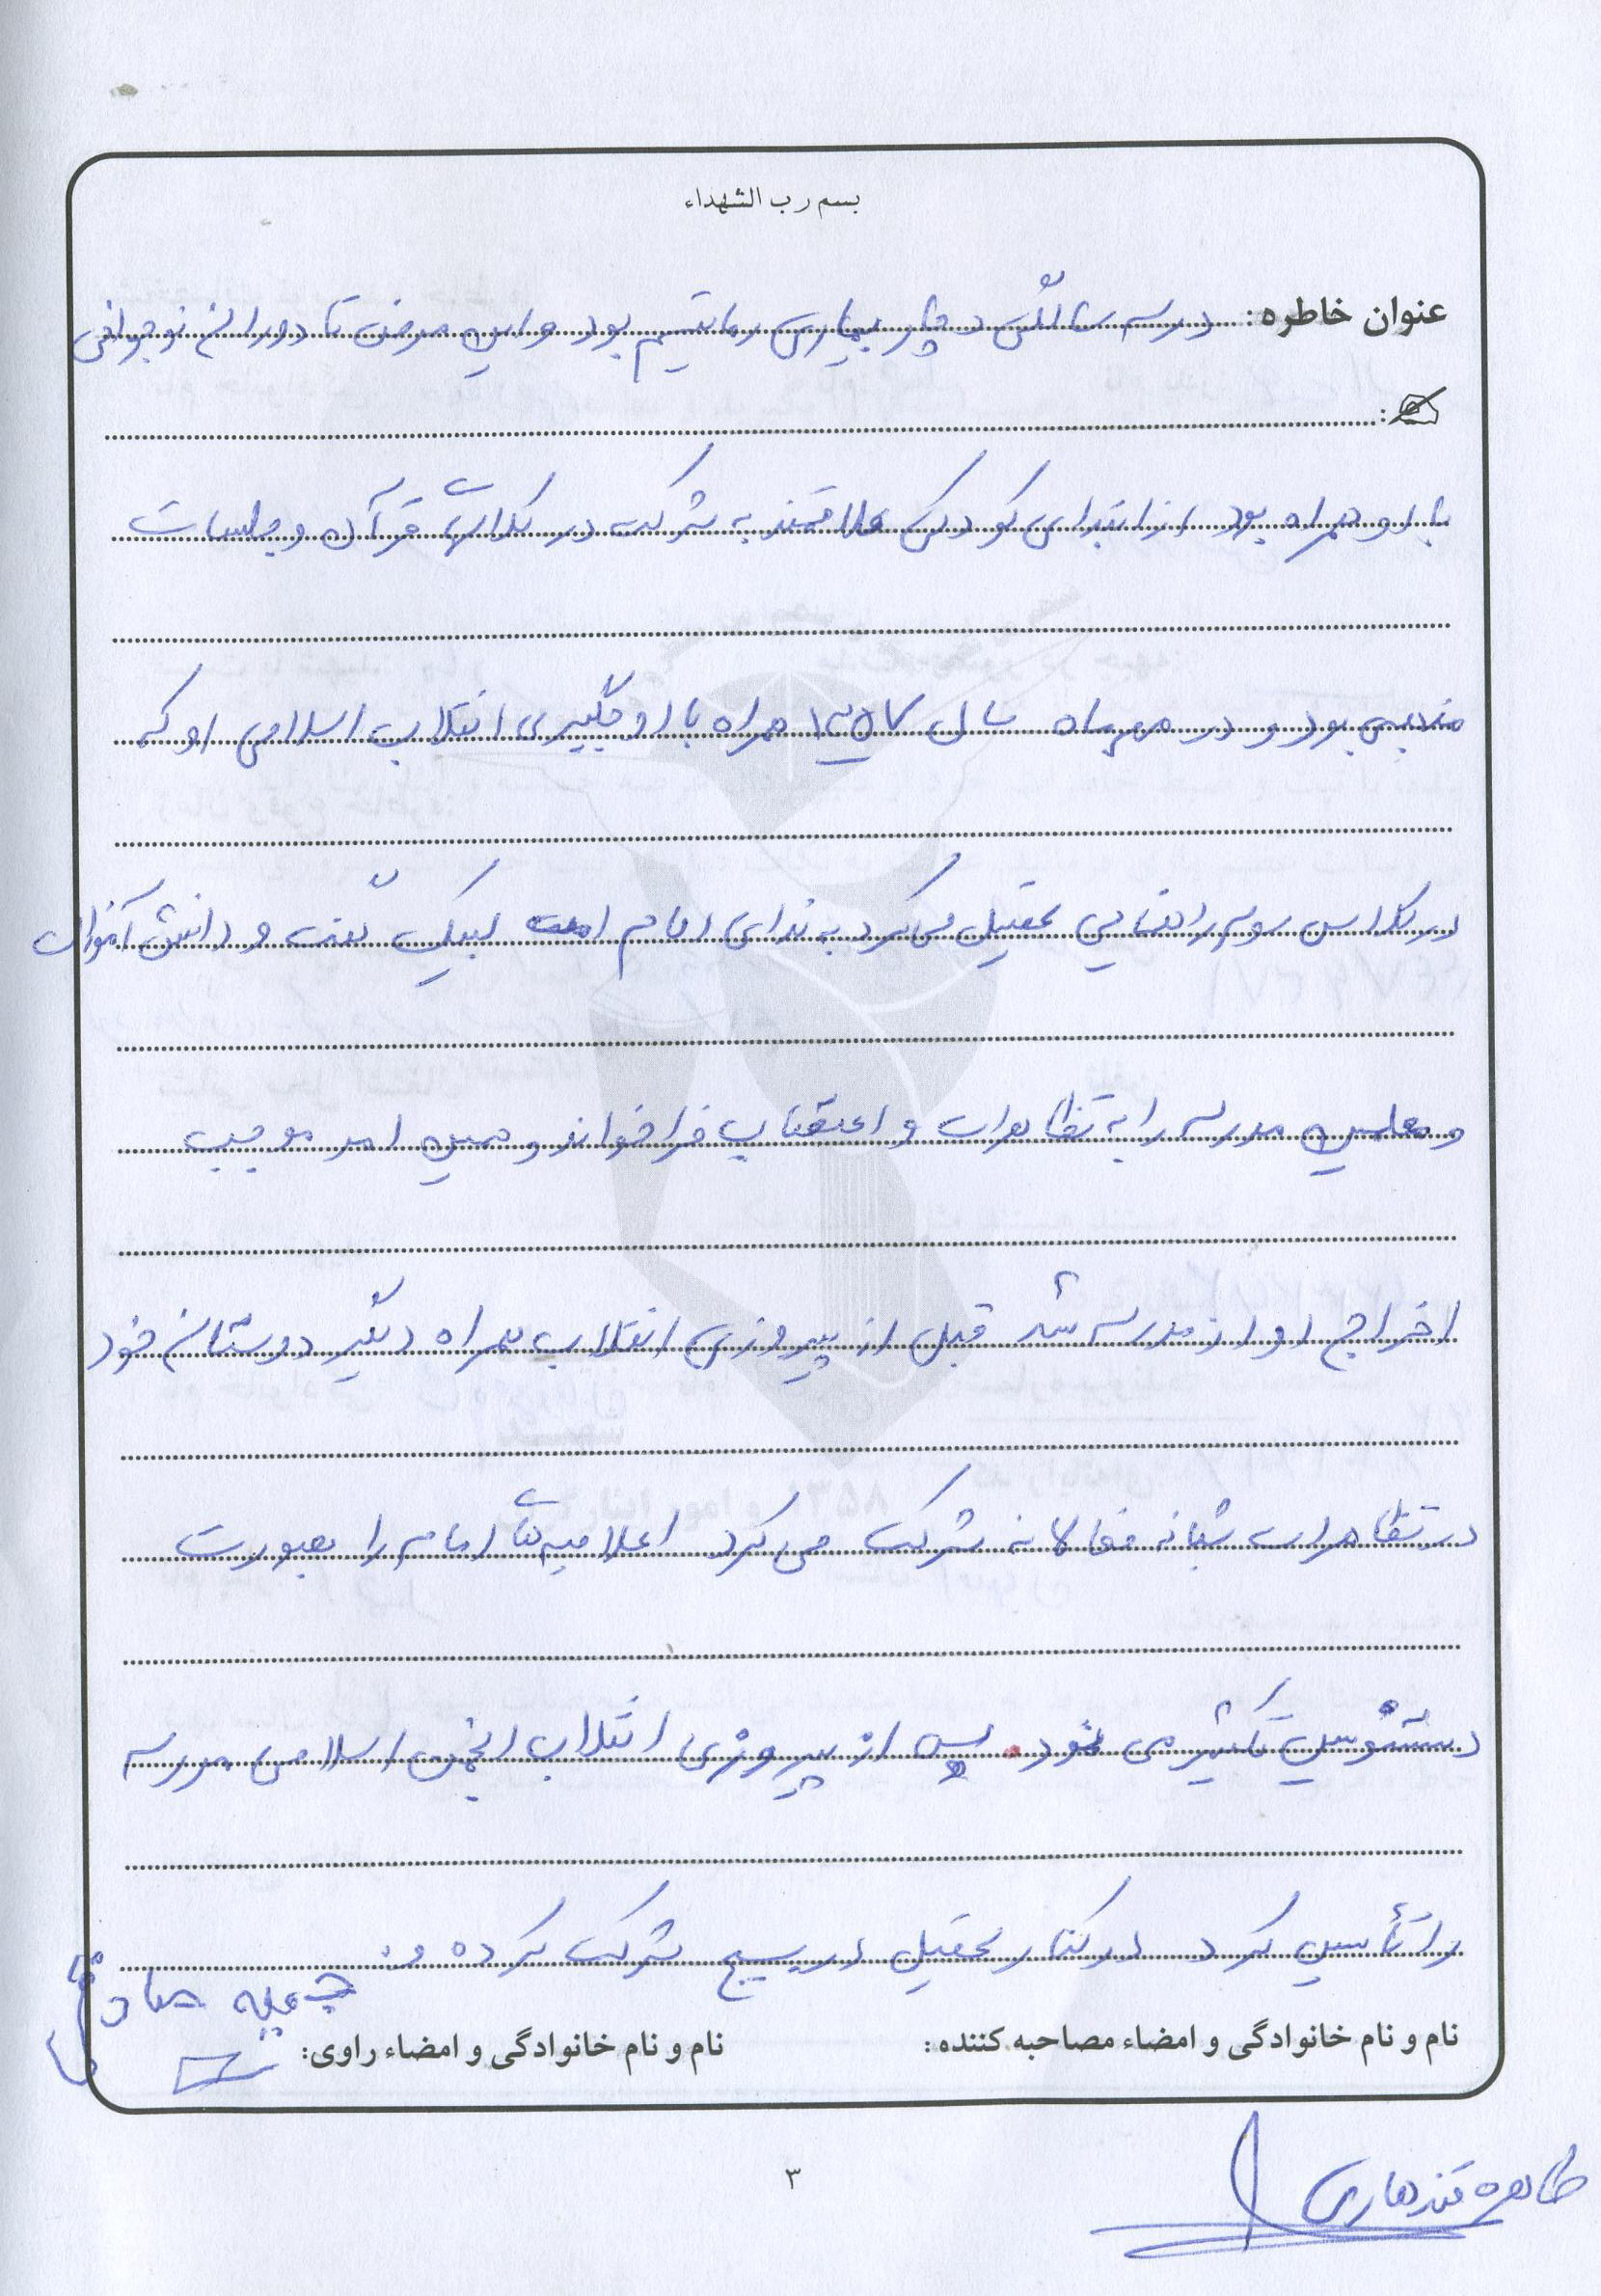 بسم رب الشهداء
عنوان خاطره: در سه سالگی دچار بیماری رماتیسم بود و این مرض تا دوران نوجوانی
با او همراه بود از ابتدای کودکی علاقمند به شرکت در کلاسهای قرآن و جلسات
مذهبی بود و در مهرماه سال ۱۳۵۷ همراه با اوجگیری انقلاب اسلامی او که
در کلاس سوم راهنمایی تحصیل می‌کرد به ندای امام امت لبیک گفت و دانش آموزان
و معلمین مدرسه را به تظاهرات و اعتصاب فراخواند و همین امر موجب
اخراج او از مدرسه شد قبل از پیروزی انقلاب همراه دیگر دوستان خود
در تظاهرات شبانه فعالانه شرکت می کرد اعلامیه های امام را بصورت
دستنویس تکثیر می نمود. پس از پیروزی انقلاب انجمن اسلامی مدرسه
را تأسیس کرد در کنار تحصیل در بسیج شرکت کرده و
نام و نام خانوادگی و امضاء مصاحبه کننده: نام و نام خانوادگی و امضاء راوی: جمیله صادقی
۳
طاهره قندهاری